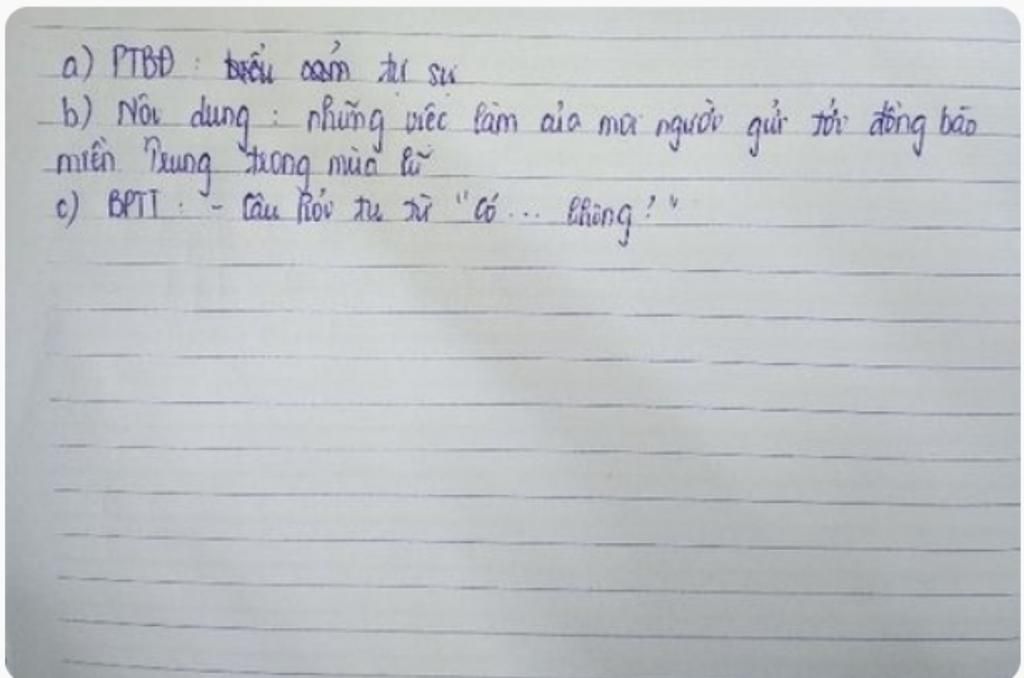 a) PTBĐ : biểu cảm tự sự
b) Nội dung : những việc làm của mọi người gửi tới đồng bào
miền Trung trong mùa lũ
c) BPTT : - Câu hỏi tu từ "Có ... không?"